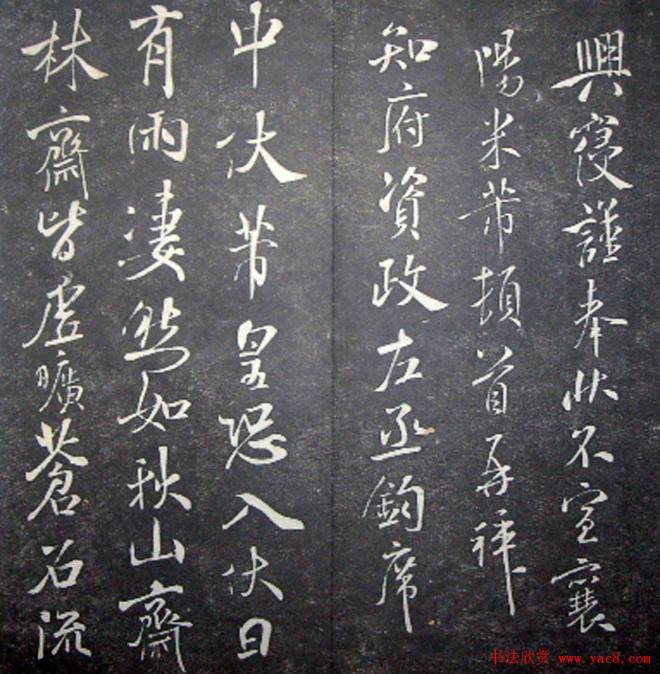 興寢謹奉狀不宣襄
陽米芾頓首再拜
知府資政左丞鈞席
中伏芾皇恐入伏日
有雨淒然如秋山齋
林齋皆虛曠蒼石流
书法欣赏 www.yac8.com